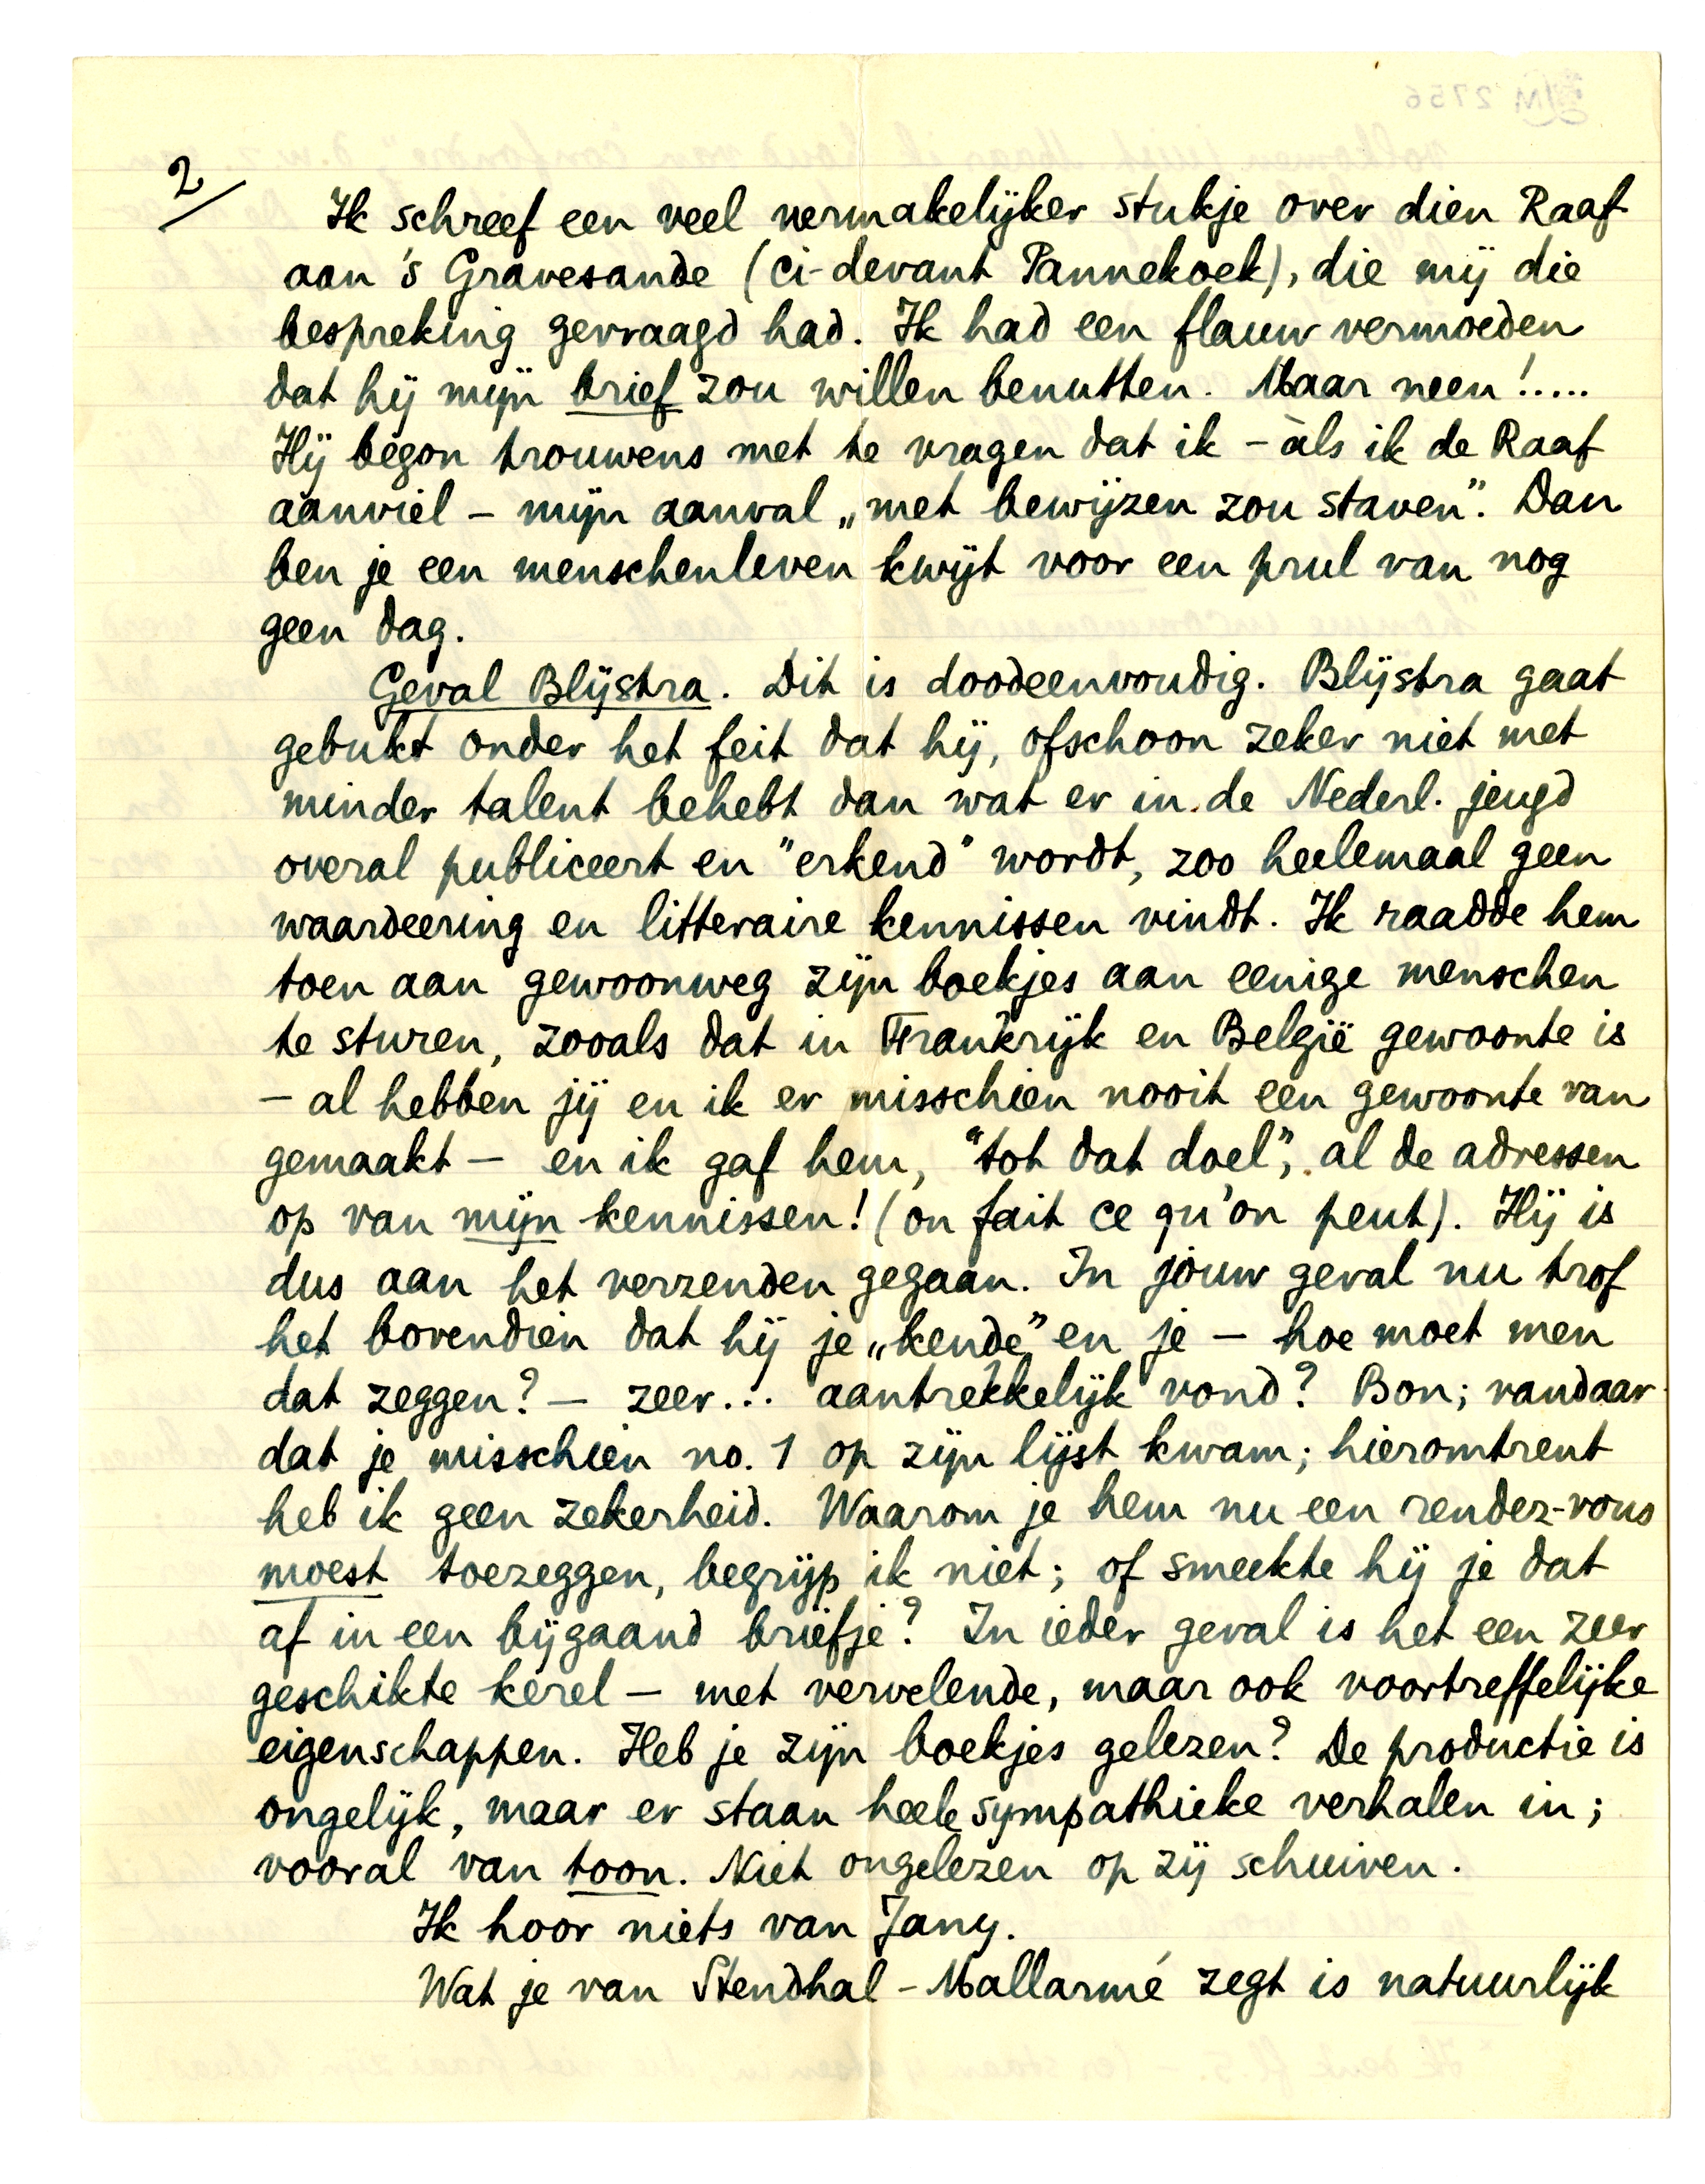 2/
Ik schreef een veel vermakelijker stukje over dien Raaf
aan 's Gravesande (ci-devant Pannekoek), die mij die
bespreking gevraagd had. Ik had een flauw vermoeden
dat hij mijn brief zou willen benutten. Maar neen!.....
Hij begon trouwens met te vragen dat ik – àls ik de Raaf
aanviel – mijn aanval „met bewijzen zou staven". Dan
ben je een menschenleven kwijt voor een prul van nog
geen dag.
Geval Blijstra. Dit is doodeenvoudig. Blijstra gaat
gebukt onder het feit dat hij, ofschoon zeker niet met
minder talent behebt dan wat er in de Nederl. jeugd
overal publiceert en "erkend" wordt, zoo heelemaal geen
waardeering en litteraire kennissen vindt. Ik raadde hem
toen aan gewoonweg zijn boekjes aan eenige menschen
te sturen, zooals dat in Frankrijk en België gewoonte is
– al hebben jij en ik er misschien nooit een gewoonte van
gemaakt – en ik gaf hem, "tot dat doel", al de adressen
op van mijn kennissen! (on fait ce qu'on peut). Hij is
dus aan het verzenden gegaan. In jouw geval nu trof
het bovendien dat hij je „kende" en je – hoe moet men
dat zeggen? – zeer... aantrekkelijk vond? Bon; vandaar
dat je misschien no. 1 op zijn lijst kwam; hieromtrent
heb ik geen zekerheid. Waarom je hem nu een rendez-vous
moest toezeggen, begrijp ik niet; of smeekte hij je dat
af in een bijgaand briefje? In ieder geval is het een zeer
geschikte kerel – met vervelende, maar ook voortreffelijke
eigenschappen. Heb je zijn boekjes gelezen? De productie is
ongelijk, maar er staan heele sympathieke verhalen in;
vooral van toon. Niet ongelezen op zij schuiven.
Ik hoor niets van Jany.
Wat je van Stendhal – Mallarmé zegt is natuurlijk